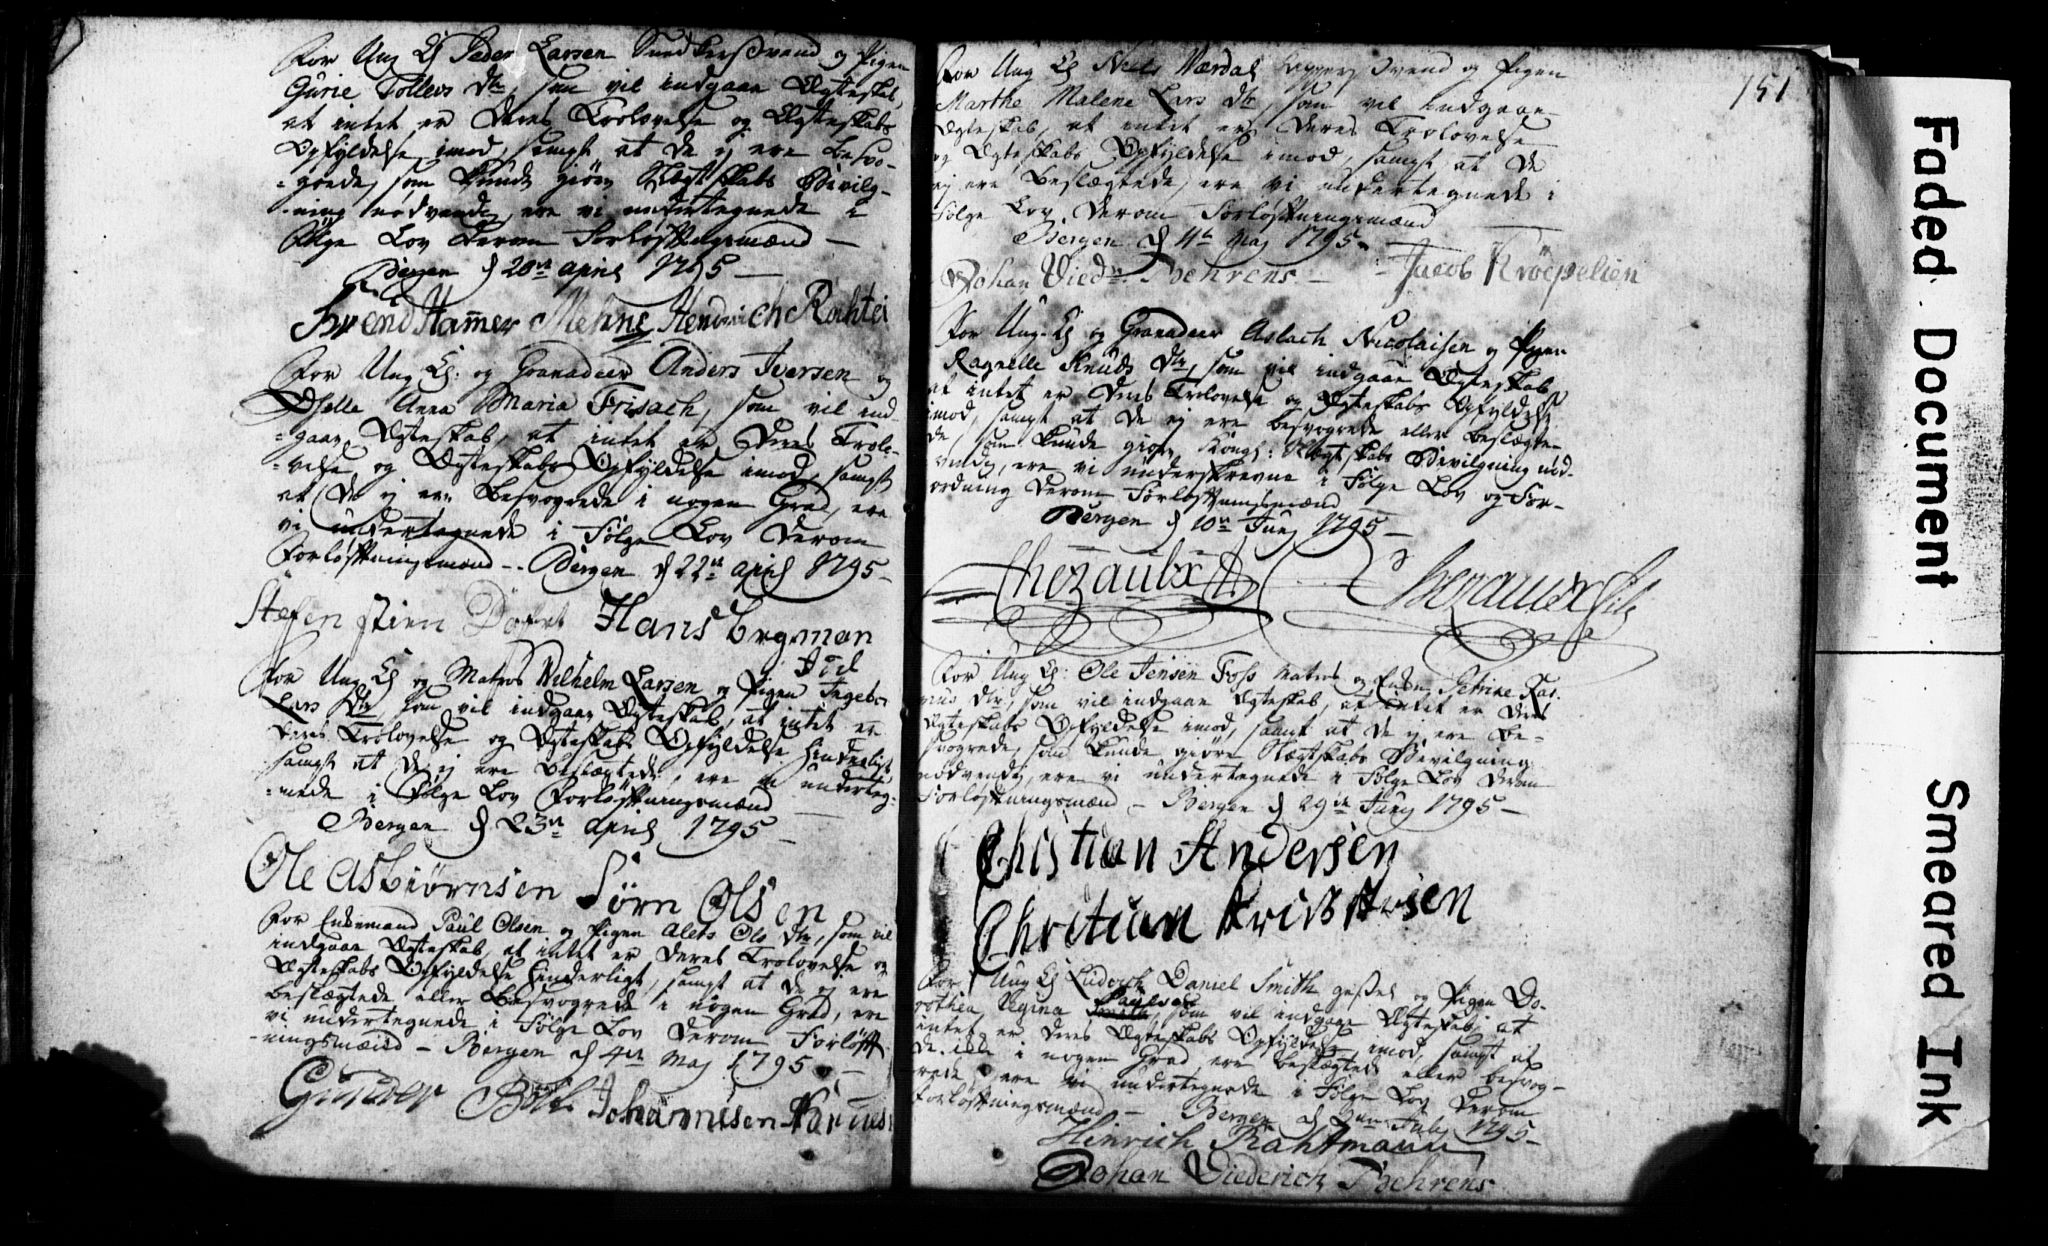 For Ung K Peder Larsen Snedkersvend og Pigen
Gurie Tollevs Dtr, som vil indgaae Ægteskab,
at intet er Deres Trolovelse og Ægteskabs
Opfyldelse imod, samt at De ej ere besvo-
-grede, som kunde giøre Slægtskabs Bevilg-
-ning nødvendig, ere vi undertegnede i
Følge Lov derom Forløftningsmænd —
Bergen d 20de April 1795 —
Svend Hammer Mehne Hendrich
For Ung K: og Granadeer Anders Iversen og
Anna Maria Frisach, som vil ind-
-gaae Ægteskab, at intet er Deres Trolo-
-velse og Ægteskabs Opfyldelse imod, samt
at De ej ere Besvogrede i nogen Grad, ere
vi undertegnede i Følge Lov derom
Forløftningsmænd -. Bergen d 22de April 1795 -
Stefen Hans bregman
For Ung K og Matros Wilhelm Larsen og Pigen Ingeb.
Lars Dtr som vil indgaae Ægteskab, at intet er
Deres Trolovelse og Ægteskabs Opfyldelse hinderligt
samt at De ej ere Beslægtede, ere vi underteg-
-nede i Følge Lov Forløftningsmænd —
Bergen d 23de April 1795 —
Ole Asbiørnsen Sørn Olsen
For Enkemand Paul Olsen og Pigen Alets Ols Dtr, som vil
indgaae Ægteskab, at intet er Deres Trolovelse og
Ægteskabs Opfyldelse hinderligt, samt at De ej ere
beslægtede eller Besvogrede i nogen Grad, ere
vi undertegnede i Følge Lov derom Forløft-
-ningsmænd — Bergen d 4de Maj 1795 —
Johannisen
151
For Ung K Niels Værdal Svend og Pigen
Marthe Malene Lars Dtr, som vil indgaae
Ægteskab, at intet er Deres Trolovelse
og Ægteskabs Opfyldelse imod, samt at De
ej ere Beslægtede, ere vi undertegnede i
Følge Lov derom Forløftningsmænd
Bergen d 4de Maj 1795 -
Johan Diedr. Behrens — Jacob Krøepelien
For Ung K og Granadeer Aslach Nicolaisen og Pigen
Ragnelle Knuds Dtr, som vil indgaae Ægteskab,
at intet er Deres Trolovelse og Ægteskabs Opfyldelse
imod, samt at De ej ere besvogrede eller beslægte-
de, som kunde giøre Kongl: Slægtskabs Bevilgning nød-
vendig, ere vi underskrevne i Følge Lov og For-
ordning derom Forløftningsmænd —
Bergen d 10de Junj 1795 —
Chezaubx Chezaubx fils
For Ung K: Ole Jensen Foss Matros og Enken Petrine Ras-
mus Dtr, som vil indgaae Ægteskab, at intet er Deres
Ægteskabs Opfyldelse imod, samt at De ej ere Be-
svogrede, som kunde giøre Slægtskabs Bevilgning
nødvendig, ere vi undertegnede i Følge Lov derom
Forløftningsmænd — Bergen d 29de Junj 1795 —
Christian Andersen
Chretian
For Ung K Ludvich Daniel Smith og Pigen Do-
rothea Regina Paulsen, som vil indgaae Ægteskab, at
intet er Deres Ægteskabs Opfyldelse imod, samt at
De ikke i nogen Grad ere beslægtede eller besvog-
rede, ere vi undertegnede i Følge Lov derom
Forløftningsmænd — Bergen d 2den Julj 1795 —
Hinrich Rahtmann
Johan Diederich Behrens
Faded Document
Smeared Ink